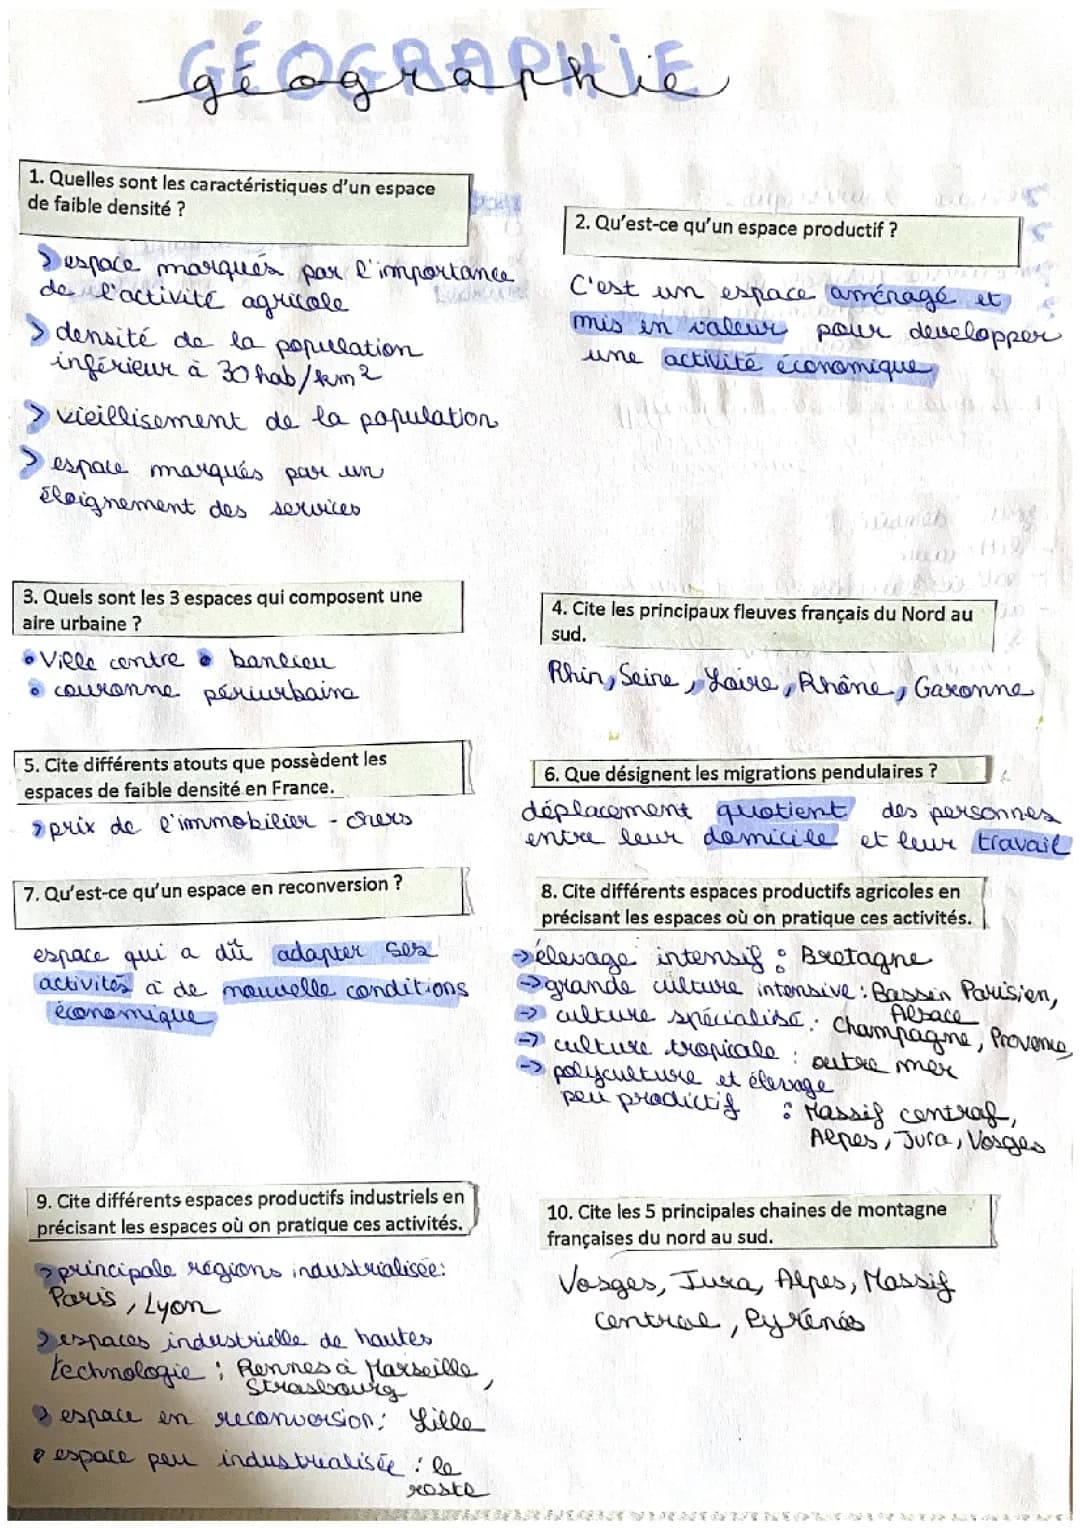 GÉOGRAPHIE
géographie
1. Quelles sont les caractéristiques d'un espace
de faible densité ?
> espace marqués par l'importance
de l'activité agricole
> densité de la population
inférieur à 30 hab/km2
> vieillisement de la population
> espace marqués par un
éloignement des services
2. Qu'est-ce qu'un espace productif ?
C'est un espace aménagé et
mis en valeur pour developper
une activité économique
3. Quels sont les 3 espaces qui composent une
aire urbaine ?
• Ville centre • banlieu
• couronne périurbaine
4. Cite les principaux fleuves français du Nord au
sud.
Rhin, Seine, Loire, Rhône, Garonne
5. Cite différents atouts que possèdent les
espaces de faible densité en France.
> prix de l'immobilier - chers
6. Que désignent les migrations pendulaires ?
déplacement quotient des personnes
entre leur domicile et leur travail
7. Qu'est-ce qu'un espace en reconversion ?
espace qui a dû adapter ses
activités à de nouvelle conditions
économique
8. Cite différents espaces productifs agricoles en
précisant les espaces où on pratique ces activités.
→ élevage intensif : Bretagne
→ grande culture intensive : Bassin Parisien,
Alsace
→ culture spécialisé : Champagne, Provence
→ culture tropicale : outre mer
→ polyculture et élevage
peu prodictif : Massif central,
Alpes, Jura, Vosges
9. Cite différents espaces productifs industriels en
précisant les espaces où on pratique ces activités.
> principale régions industrialisée:
Paris, Lyon
> espaces industrielle de hautes
technologie : Rennes à Marseille,
Strasbourg
> espace en reconversion: Lille
> espace peu industrialisée : le
reste
10. Cite les 5 principales chaines de montagne
françaises du nord au sud.
Vosges, Jura, Alpes, Massif
central, Pyrénés